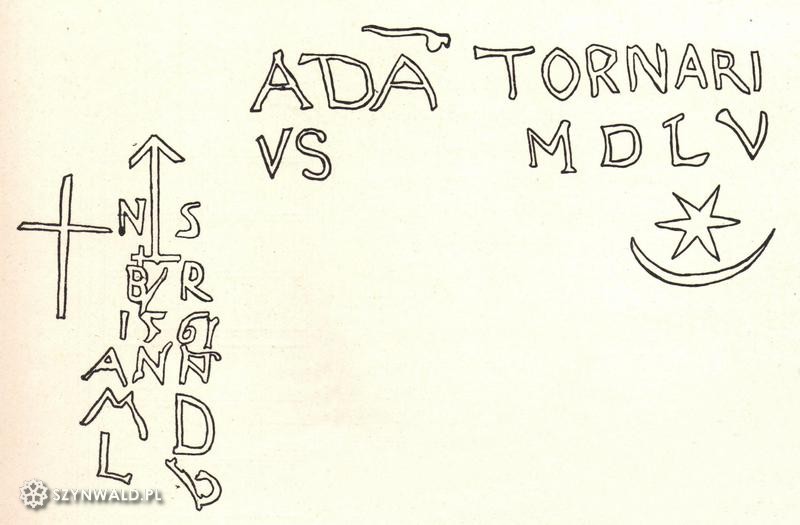 ADĀ TORNARI
VS MDLV
N S
B R
I S
A N N
M D
L
SZYNWALD.PL